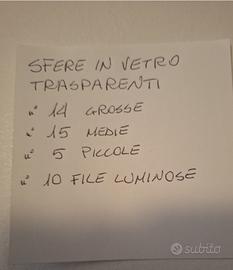 SFERE IN VETRO
TRASPARENTI
n° 14 GROSSE
n° 15 MEDIE
n° 5 PICCOLE
n° 10 FILE LUMINOSE
subito